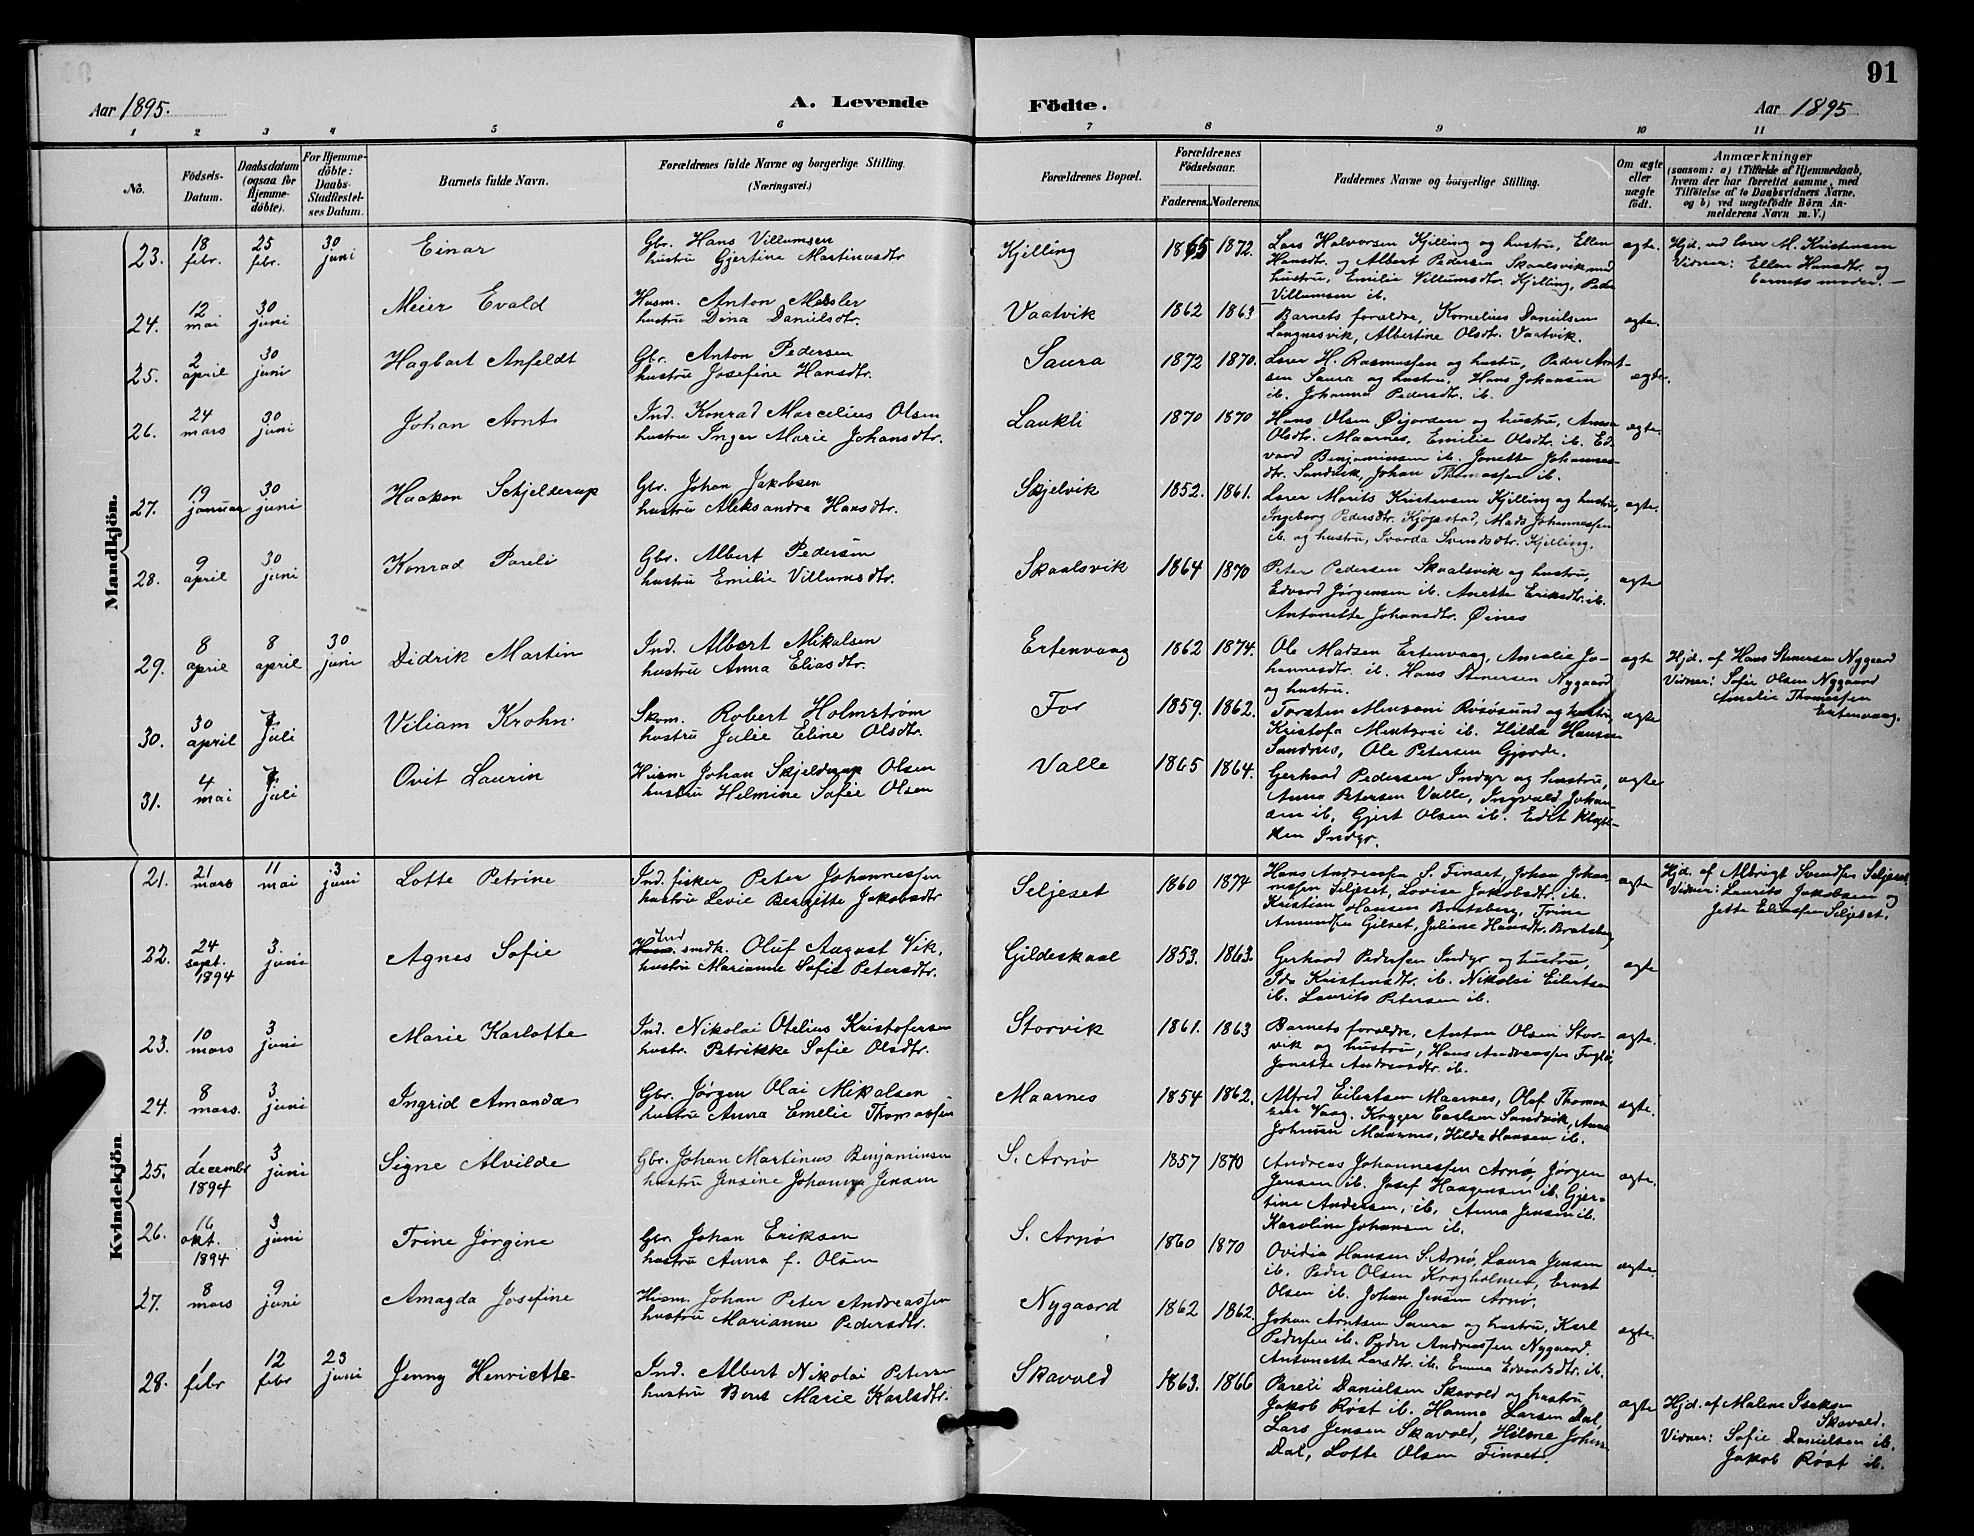 91
Aar 1895.
A. Levende Födte.
Aar 1895
1 2 3 4 5 6 7 8 9 10 11
No.
Födsels-Datum.
Daabsdatum (ogsaa for Hjemme-döbte).
For Hjemme-döbte: Daabs-Stadfæstel-ses Datum.
Barnets fulde Navn.
Forældrenes fulde Navne og borgerlige Stilling. (Næringsvei.)
Forældrenes Bopæl.
Forældrenes Födselsaar.
Faderens. Moderens.
Faddernes Navne og borgerlige Stilling.
Om ægte eller uægte födt.
Anmærkninger
(saasom: a) i Tilfælde af Hjemmedaab, hvem der har forrettet samme, med Tilföielse af to Daabsvidners Navne, og b) ved uægtefödte Börn An-melderens Navn m. V.)
Mandkjön.
23. 18 febr. 25 febr. 30 juni Einar
Gbr. Hans Villumsen
hustru Gjertine Martinusdtr
Kjelling 1865 1872.
Lars Halvorsen Kjelling og hustru, Ellen
Hansdtr. og Albert Pedersen Skaalsvik med
hustru, Emilie Villumsdtr. Kjelling, Peder
Villumsen ib.
ægte.
Hjd. ved lærer M. Kristensen
Vidner: Ellen Hansdtr. og
barnets moder.
24. 12 mai 30 juni Meier Evald
Husm. Anton Mesler
hustru Dina Danielsdtr.
Vaatvik 1862 1863
Barnets forældre, Kornelius Danielsen
Langnesvik, Albertine Olsdtr. Vaatvik.
ægte.
25. 2 april 30 juni Hagbart Anfeldt
Gbr. Anton Pedersen
hustru Josefine Hansdtr.
Saura 1872 1870.
Lærer H. Rasmussen og hustru, Peder Arnt-
sen Saura og hustru, Hans Johansen
ib. Johanna Pedersdtr. ib.
ægte.
26. 24 mars 30 juni Johan Arnt
Ind. Konrad Marcelius Olsen
hustru Inger Marie Johansdtr.
Laukli 1870 1870
Hans Olsen Øijorden og hustru, Anna
Olsdtr. Maarnes, Emilie Olsdtr. ib. Ed-
vard Benjaminsen ib. Jonette Johannes-
dtr. Sandvik, Johan Thomassen ib.
ægte.
27. 19 januar 30 juni Haakon Schjelderup
Gbr. Johan Jakobsen
hustru Aleksandra Hansdtr.
Skjelvik 1852. 1861.
Lærer Morits Kristensen Kjelling og hustru,
Ingeborg Pedersdtr. Kjøpstad, Mads Johannessen
ib. og hustru, Ivarda Svendsdtr. Kjelling.
ægte.
28. 9 april 30 juni Konrad Pareli
Gbr. Albert Pedersen
hustru Emilie Villumsdtr.
Skaalsvik 1864 1870
Peter Pedersen Skaalsvik og hustru,
Edvard Jørgensen ib. Anette Eriksdtr. ib.
Antonette Johansdtr. Øines
ægte
29. 8 april 8 april 30 juni Didrik Martin
Ind. Albert Mikalsen
hustru Anna Eliasdtr.
Ertenvaag 1862 1874.
Ole Madsen Ertenvaag, Amalie Jo-
hannesdtr. ib. Hans Stenersen Nygaard
og hustru.
ægte
Hjd. af Hans Stenersen Nygaard
Vidner: Sofie Olsen Nygaard
Amalie Thomassen
Ertenvaag.
30. 30 april 7 juli Viliam Krohn
Skom. Robert Holmstrøm
hustru Julie Eline Olsdtr.
For 1859. 1862.
Torsten Røsøsund og hustru,
Kristofa ib. Hilda Hansen
Sandnes, Ole Petersen Gjerde.
ægte
31. 4 mai 7 juli Ovit Laurin
Husm Johan Skjelderup Olsen
hustru Helmine Sofie Olsen
Valle 1865 1864.
Gerhard Pedersen Indyr og hustru,
Anna Petersen Valle, Ingvald Johan-
sen ib, Gjert Olsen ib. Edit
Indyr.
ægte
Kvindekjön.
21. 21 mars 11 mai 3 juni Lotte Petrine
Ind. fisker Peter Johannessen
hustru Levie Bergitte Jakobsdtr
Seljeset 1860 1874
Hans Andreassen S. Finset, Johan Johan-
nessen Seljeset, Lovise Jakobsdtr. ib.
Kristian Hansen Bratsberg, Trine
Amundsen Gilset, Juliane Hansdtr. Bratsberg
ægte
Hjd. af Albrigt Svendsen Seljeset,
Vidner: Laurits Jakobsen og
Jette Eliassen Seljeset.
22. 24 sept. 1894 3. juni Agnes Sofie
Ind
Husm. smdk. Oluf August Vik,
hustru Marianne Sofie Petersdtr.
Gildeskaal 1853. 1863.
Gerhard Pedersen Indyr og hustru,
Ida Kristensdtr. ib. Nikolai Eilertsen
ib. Laurits Petersen ib.
ægte
23. 10 mars 3 juni Marie Karlotte
Ind. Nikolai Otelius Kristofersen
hustr. Petrikke Sofie Olsdtr.
Storvik 1861. 1863
Barnets forældre, Anton Olsen Stor-
vik og hustru, Hans Andreassen Fuglø,
Jonette Andreasdtr. ib.
ægte.
24. 8 mars. 3 juni Ingrid Amanda
Gbr. Jørgen Olai Mikalsen
hustru Anna Emelie Thomassen
Maarnes 1854 1862.
Alfred Eilertsen Maarnes, Olaf Thomas-
sen Vaag. Krøger Carlsen Sandvik, Anna
Johnsen Maarnes, Hilda Hansen ib.
ægte.
25. 1 decembr 1894 3 juni Signe Alvilde
Gbr. Johan Martinus Benjaminsen
hustru Jensine Johanna Jensen
S. Arnø 1857 1870
Andreas Johannessen Arnø, Jørgen
Jensen ib. Josef Haagensen ib. Gjer-
tine Andersen, ib, Anna Jensen ib.
Karoline Johansen ib.
ægte.
26. 16 okt. 1894 3 juni Trine Jørgine
Gbr. Johan Eriksen
hustru Anna f. Olsen
S. Arnø 1860 1870
Ovidia Hansen S. Arnø, Laura Jensen
ib. Peder Olsen Kragholmen, Ernst
Olsen ib. Johan Jensen Arnø.
ægte.
27. 8 mars 9 juni Amagda Josefine
Husm. Johan Peter Andreassen
hustru Marianne Pedersdtr.
Nygaard 1862 1862.
Johan Arntsen Saura og hustru, Karl
Pedersen ib. Peder Andreassen Nygaard.
Antonette Larsdtr. ib. Emma Edvardsdtr. ib.
ægte.
28. 1 febr 12 febr 23 juni Jenny Henriette
Ind. Albert Nikolai Petersen
hustru Beret Marie Karlsdtr.
Skavold 1863. 1866
Pareli Danielsen Skavold og hustru,
Jakob Røst ib. Hanna Larsen Dal,
Lars Jensen Skavold, Helene Johnsen
Dal, Lotte Olsen Finset.
ægte
Hjd. af Malene Isaksen
Skavold.
Vidner: Sofie Danielsen ib.
Jakob Røst ib.